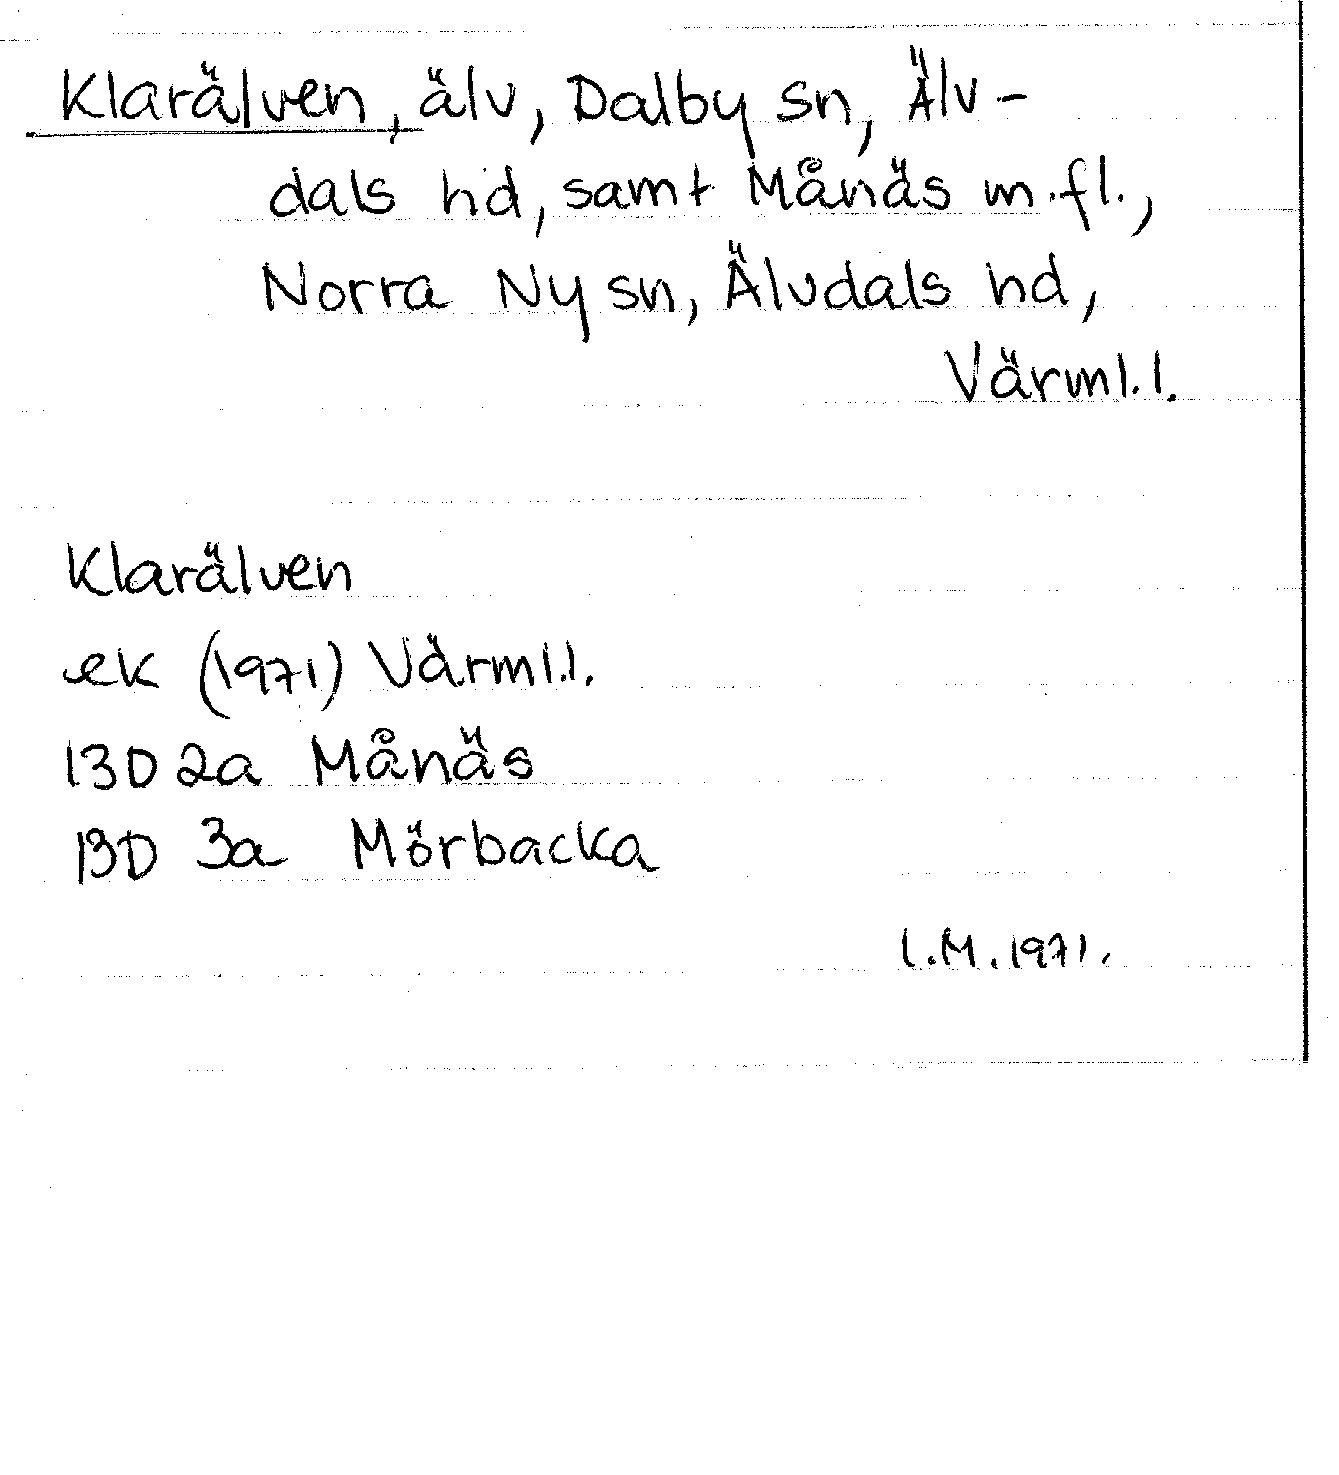 Klarälven, älv, Dalby sn, Älv-
dals hd, samt Månäs m.fl.,
Norra Ny sn, Älvdals hd,
Värml.l.
Klarälven
ek (1971) Värml.l.
13D 2a Månäs
13D 3a Mörbacka
l.M.1971.